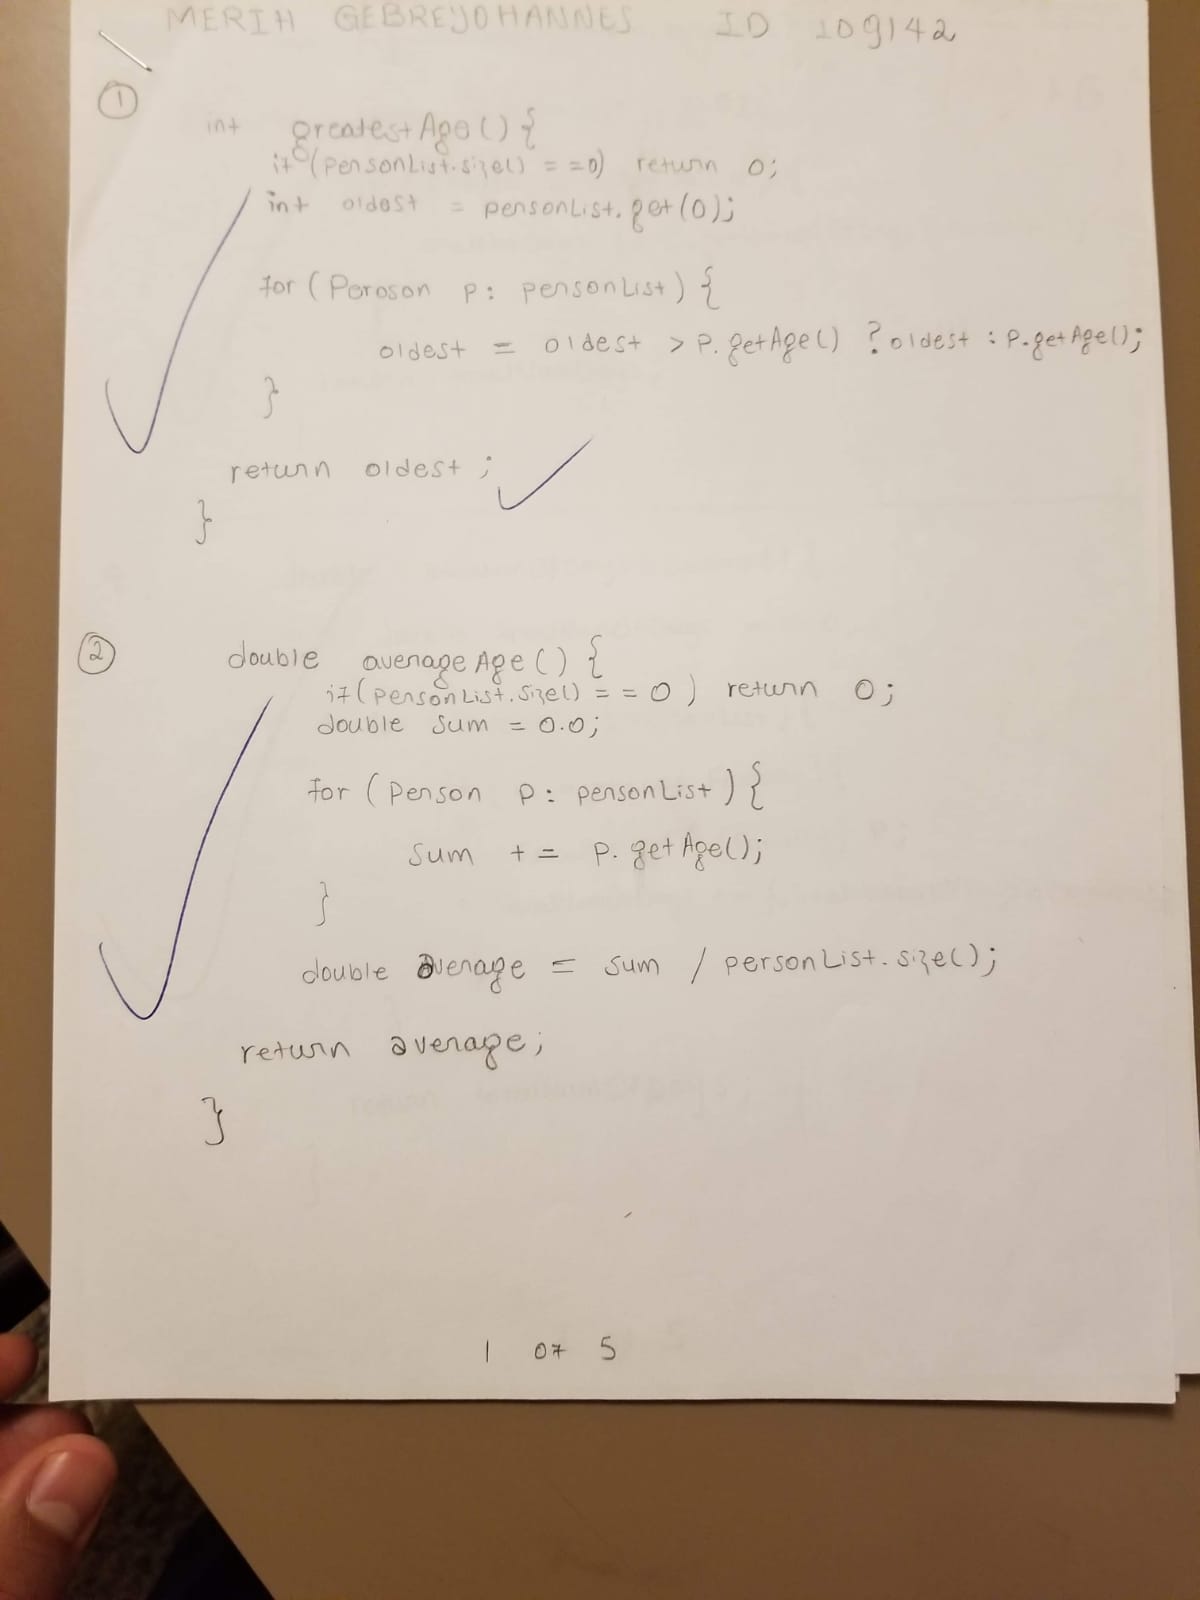 MERIH GEBREYOHANNES ID 109142
1
int greatestAge() {
if (personList.size() == 0) return 0;
int oldest = personList.get(0);
for (Peroson p: personList) {
oldest = oldest > p.getAge() ? oldest : p.getAge();
}
return oldest;
}
2
double averageAge() {
if (personList.size() == 0) return 0;
double sum = 0.0;
for (Person p: personList) {
sum += p.getAge();
}
double average = sum / personList.size();
return average;
}
1 of 5